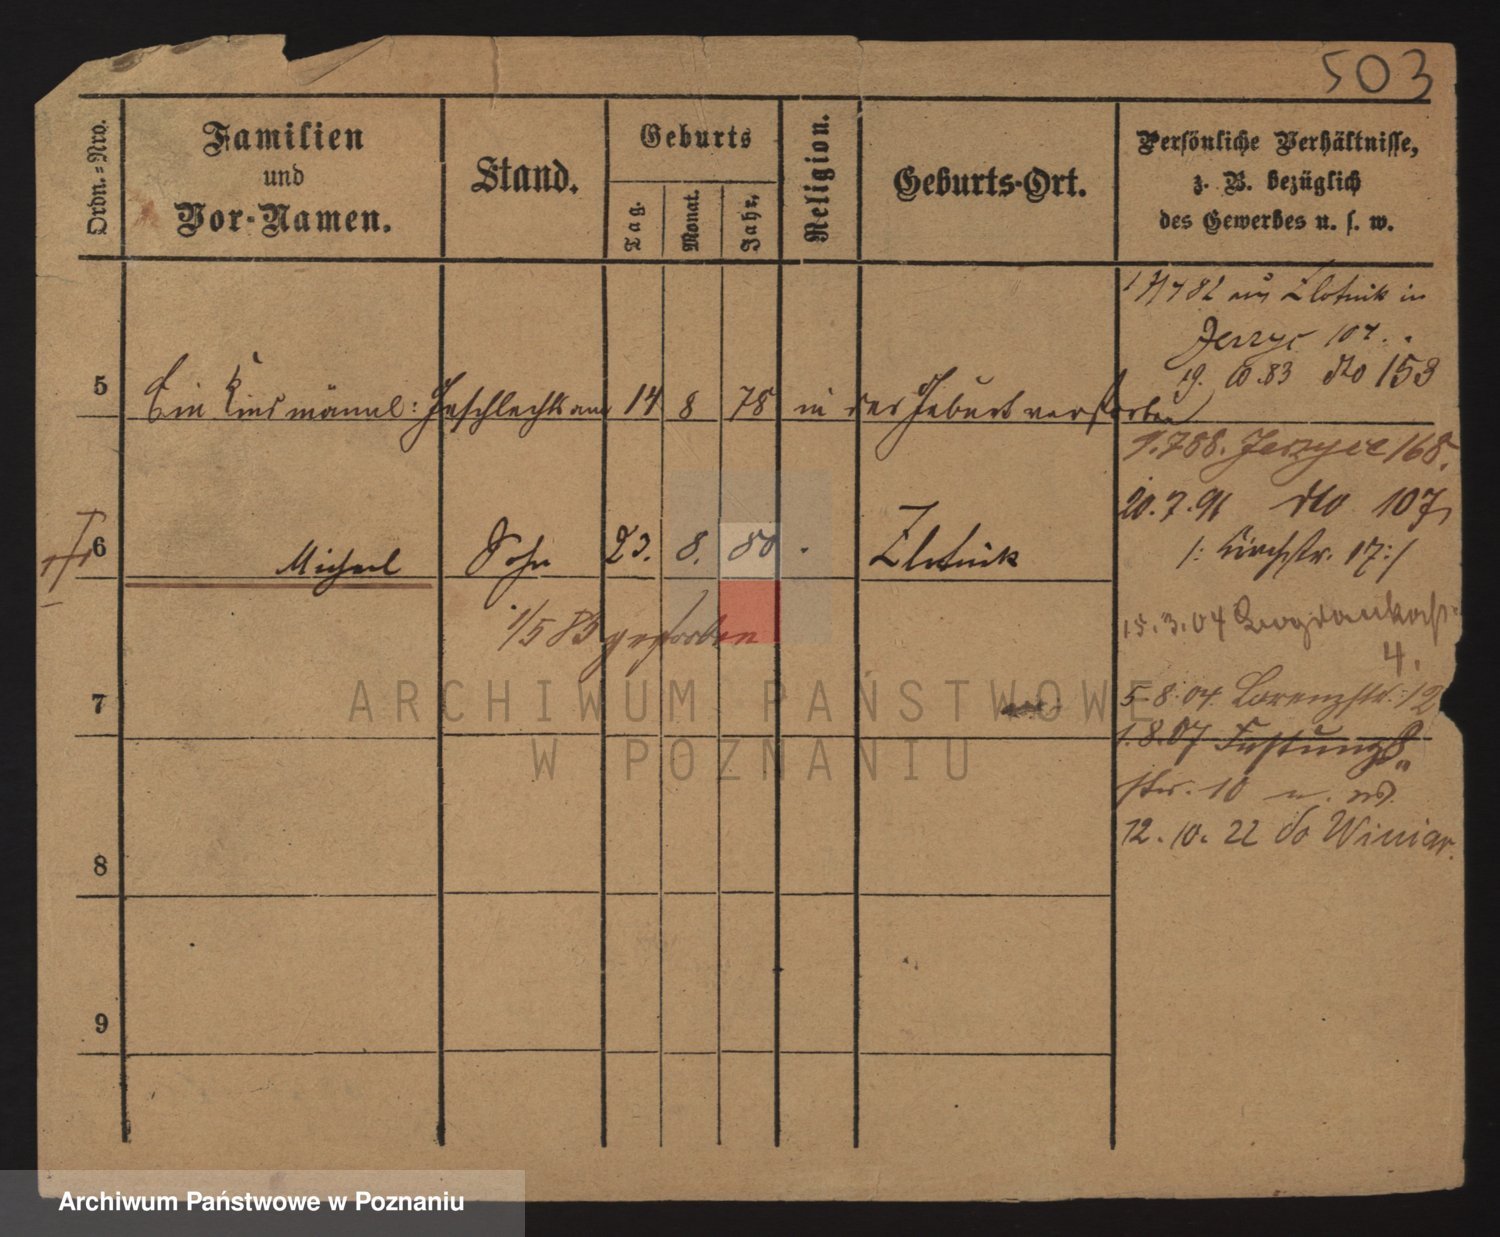 503
Ordn.=Nro.
Familien
und
Vor-Namen.
Stand.
Geburts
Tag.
Monat.
Jahr.
Religion.
Geburts-Ort.
Persönliche Verhältnisse,
z. B. bezüglich
des Gewerbes u. s. w.
82 aus Zlotnik in
Jerzyc 107.
19. 10.83 dto 153
5 Ein Kind männl: Geschlechts am 14 8 78 in der Geburt verstorben
1.7 88. Jerzyce 168.
20.7.91 dto 107,
/: Kirchstr. 17:/
6 Michael Sohn 23. 8. 80 Zlotnik
1/5 85 gestorben
15.3.04
4.
7
5.8.04 Lorenzstr. 12
1.8.07 Festungs„
str. 10
12.10.22 do Winiar.
8
9
ARCHIWUM PAŃSTWOWE
W POZNANIU
Archiwum Państwowe w Poznaniu